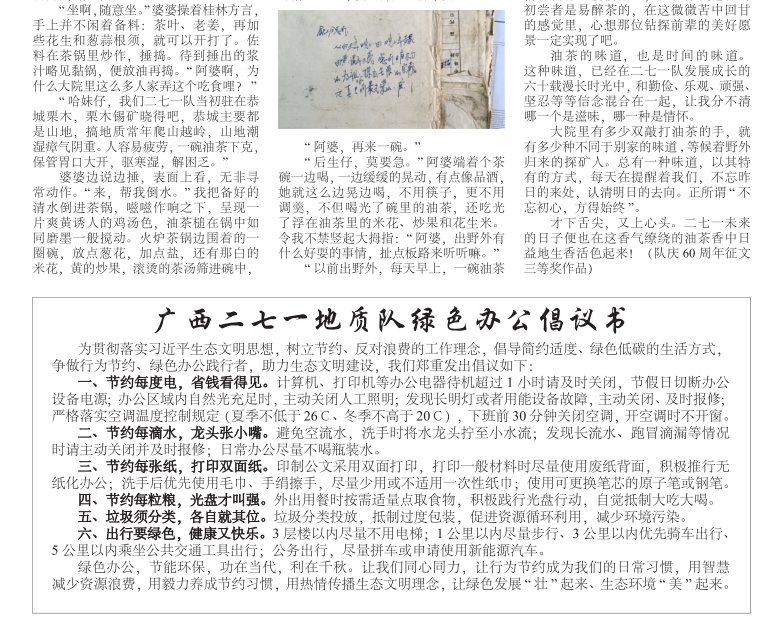 “坐啊，随意坐。”婆婆操着桂林方言，
手上并不闲着备料：茶叶、老姜，再加
些花生和葱蒜根须，就可以开打了。佐
料在茶锅里炒作，捶捣。待到捶出的浆
汁略见黏锅，便放油再捣。“阿婆啊，为
什么大院里这么多人家弄这个吃食哩？”
“哈妹仔，我们二七一队当初驻在恭
城栗木，栗木锡矿晓得吧，恭城主要都
是山地，搞地质常年爬山越岭，山地潮
湿瘴气阴重。人容易疲劳，一碗油茶下克，
保管胃口大开，驱寒湿，解困乏。”
婆婆边说边捶，表面上看，无非寻
常动作。“来，帮我倒水。”我把备好的
清水倒进茶锅，嗞嗞作响之下，呈现一
片爽黄诱人的鸡汤色，油茶槌在锅中如
同磨墨一般搅动。火炉茶锅边围着的一
圈碗，放点葱花，加点盐，还有那白的
米花，黄的炒果，滚烫的茶汤筛进碗中，
“阿婆，再来一碗。”
“后生仔，莫要急。”阿婆端着个茶
碗一边喝，一边缓缓的晃动，有点像品酒，
她就这么边晃边喝，不用筷子，更不用
调羹，不但喝光了碗里的油茶，还吃光
了浮在油茶里的米花、炒果和花生米。
令我不禁竖起大拇指：“阿婆，出野外有
什么好耍的事情，扯点板路来听听嘛。”
“以前出野外，每天早上，一碗油茶
初尝者是易醉茶的，在这微微苦中回甘
的感觉里，心想那位钻探前辈的美好愿
景一定实现了吧。
油茶的味道，也是时间的味道。
这种味道，已经在二七一队发展成长的
六十载漫长时光中，和勤俭、乐观、顽强、
坚忍等等信念混合在一起，让我分不清
哪一个是滋味，哪一种是情怀。
大院里有多少双敲打油茶的手，就
有多少种不同于别家的味道，等候着野外
归来的探矿人。总有一种味道，以其特
有的方式，每天在提醒着我们，不忘昨
日的来处，认清明日的去向。正所谓“不
忘初心，方得始终”。
才下舌尖，又上心头。二七一未来
的日子便也在这香气缭绕的油茶香中日
益地生香活色起来！（队庆 60 周年征文
三等奖作品）
广西二七一地质队绿色办公倡议书
为贯彻落实习近平生态文明思想，树立节约、反对浪费的工作理念，倡导简约适度、绿色低碳的生活方式，
争做行为节约、绿色办公践行者，助力生态文明建设，我们郑重发出倡议如下：
一、节约每度电，省钱看得见。计算机、打印机等办公电器待机超过 1 小时请及时关闭，节假日切断办公
设备电源；办公区域内自然光充足时，主动关闭人工照明；发现长明灯或者用能设备故障，主动关闭、及时报修；
严格落实空调温度控制规定（夏季不低于 26℃、冬季不高于 20℃），下班前 30 分钟关闭空调，开空调时不开窗。
二、节约每滴水，龙头张小嘴。避免空流水，洗手时将水龙头拧至小水流；发现长流水、跑冒滴漏等情况
时请主动关闭并及时报修；日常办公尽量不喝瓶装水。
三、节约每张纸，打印双面纸。印制公文采用双面打印，打印一般材料时尽量使用废纸背面，积极推行无
纸化办公；洗手后优先使用毛巾、手绢擦手，尽量少用或不适用一次性纸巾；使用可更换笔芯的原子笔或钢笔。
四、节约每粒粮，光盘才叫强。外出用餐时按需适量点取食物，积极践行光盘行动，自觉抵制大吃大喝。
五、垃圾须分类，各自就其位。垃圾分类投放，抵制过度包装，促进资源循环利用，减少环境污染。
六、出行要绿色，健康又快乐。3 层楼以内尽量不用电梯；1 公里以内尽量步行、3 公里以内优先骑车出行、
5 公里以内乘坐公共交通工具出行；公务出行，尽量拼车或申请使用新能源汽车。
绿色办公，节能环保，功在当代，利在千秋。让我们同心同力，让行为节约成为我们的日常习惯，用智慧
减少资源浪费，用毅力养成节约习惯，用热情传播生态文明理念，让绿色发展“壮”起来、生态环境“美”起来。